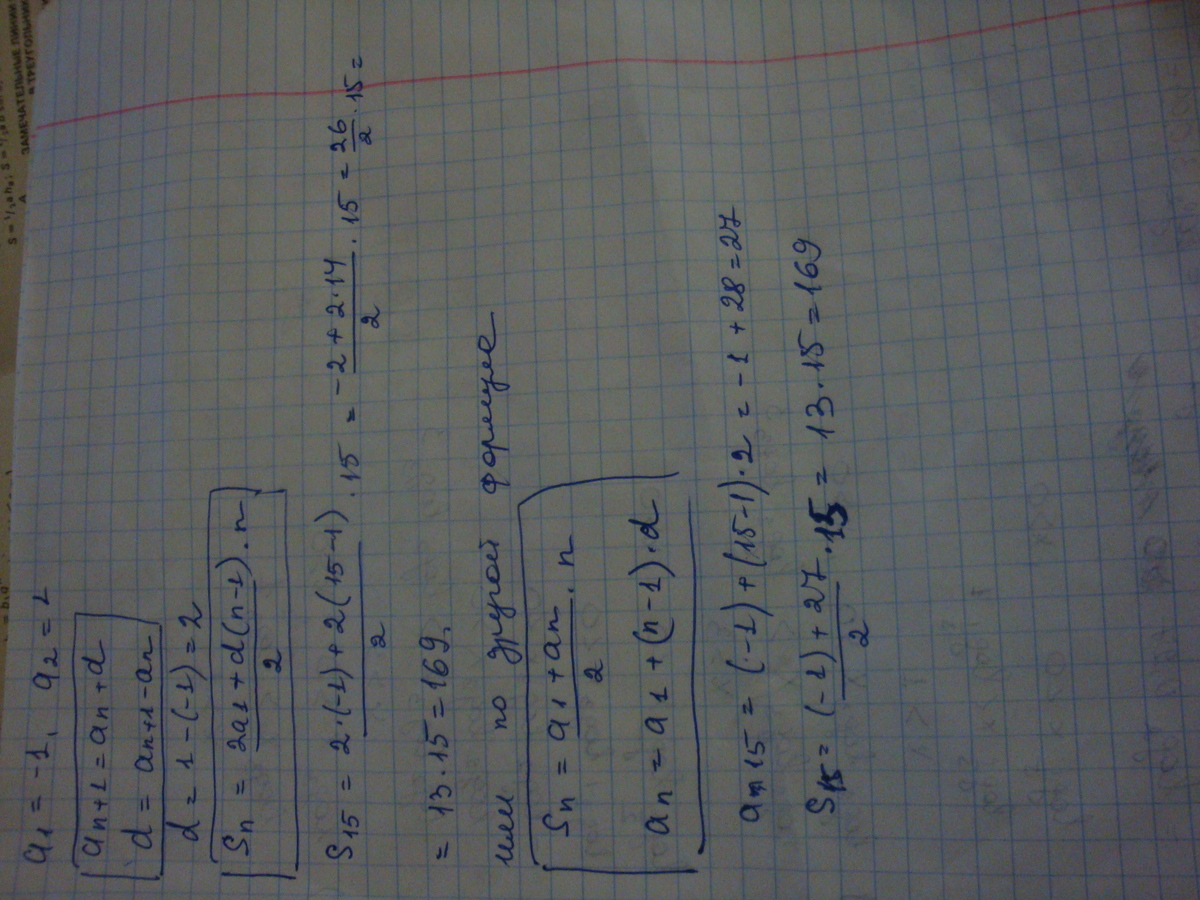 a₁ = -1, a₂ = 1
aₙ₊₁ = aₙ + d
d = aₙ₊₁ - aₙ
d = 1 - (-1) = 2
Sₙ = (2a₁ + d(n-1))/2 · n
S₁₅ = (2·(-1) + 2(15-1))/2 · 15 = (-2 + 2·14)/2 · 15 = 26/2 · 15 =
= 13·15 = 169.
или по другой формуле
Sₙ = (a₁ + aₙ)/2 · n
aₙ = a₁ + (n-1)·d
a₁₅ = (-1) + (15-1)·2 = -1 + 28 = 27
S₁₅ = ((-1) + 27)/2 · 15 = 13·15 = 169
ЗАМЕЧАТЕЛЬНЫЕ ЛИНИИ
В ТРЕУГОЛЬНИК
A